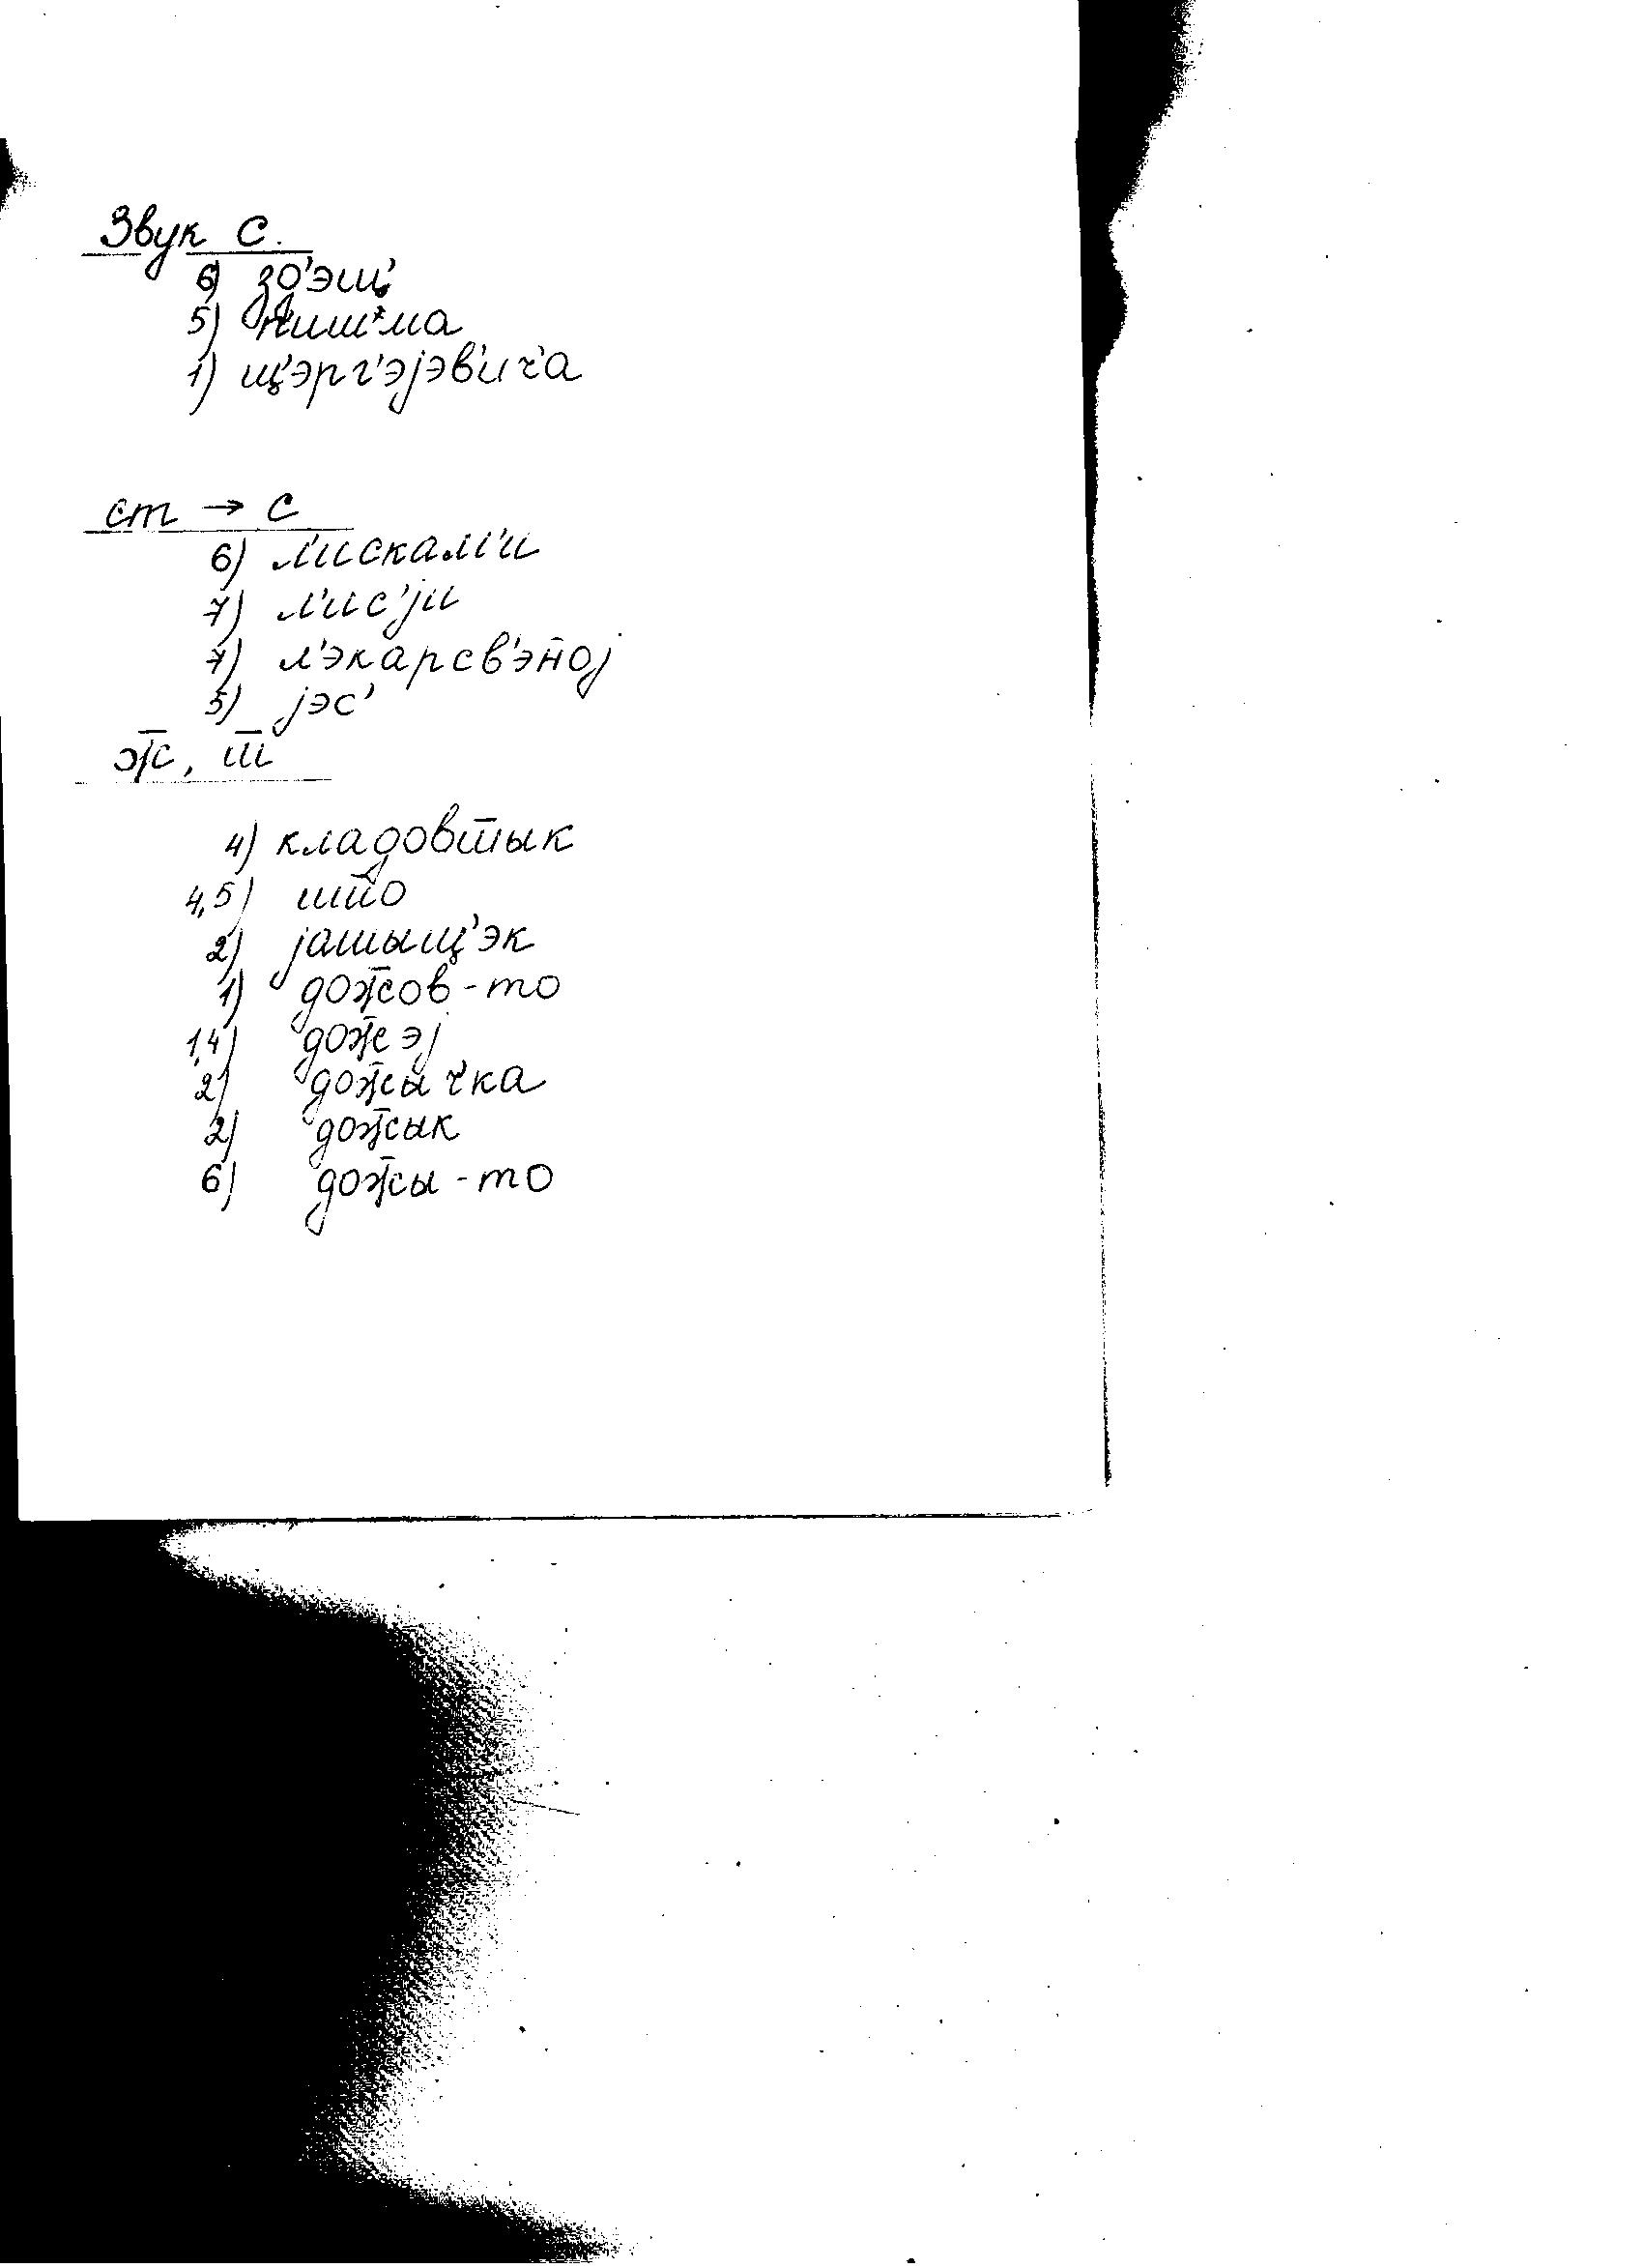 Звук с.
6) зд'эщ'
5) пиш'ма
1) щ'эрг'эjэв'ич'а
ст → с
6) л'искам'и
7) л'ис'jи
7) л'экарсв'эн̄оj
5) jэс'
ж̄, ш̄
4) кладовш̄ык
4,5) ш̄о
2) jашыщ'эк
1) дож̄ов-то
1,4) дож̄эj
2) дож̄ычка
2) дож̄ык
6) дож̄ы-то